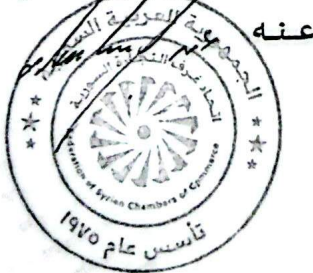 عنه
الجمهورية العربية السورية
اتحاد غرف التجارة السورية
Federation of Syrian Chambers of Commerce
تأسس عام ١٩٧٥